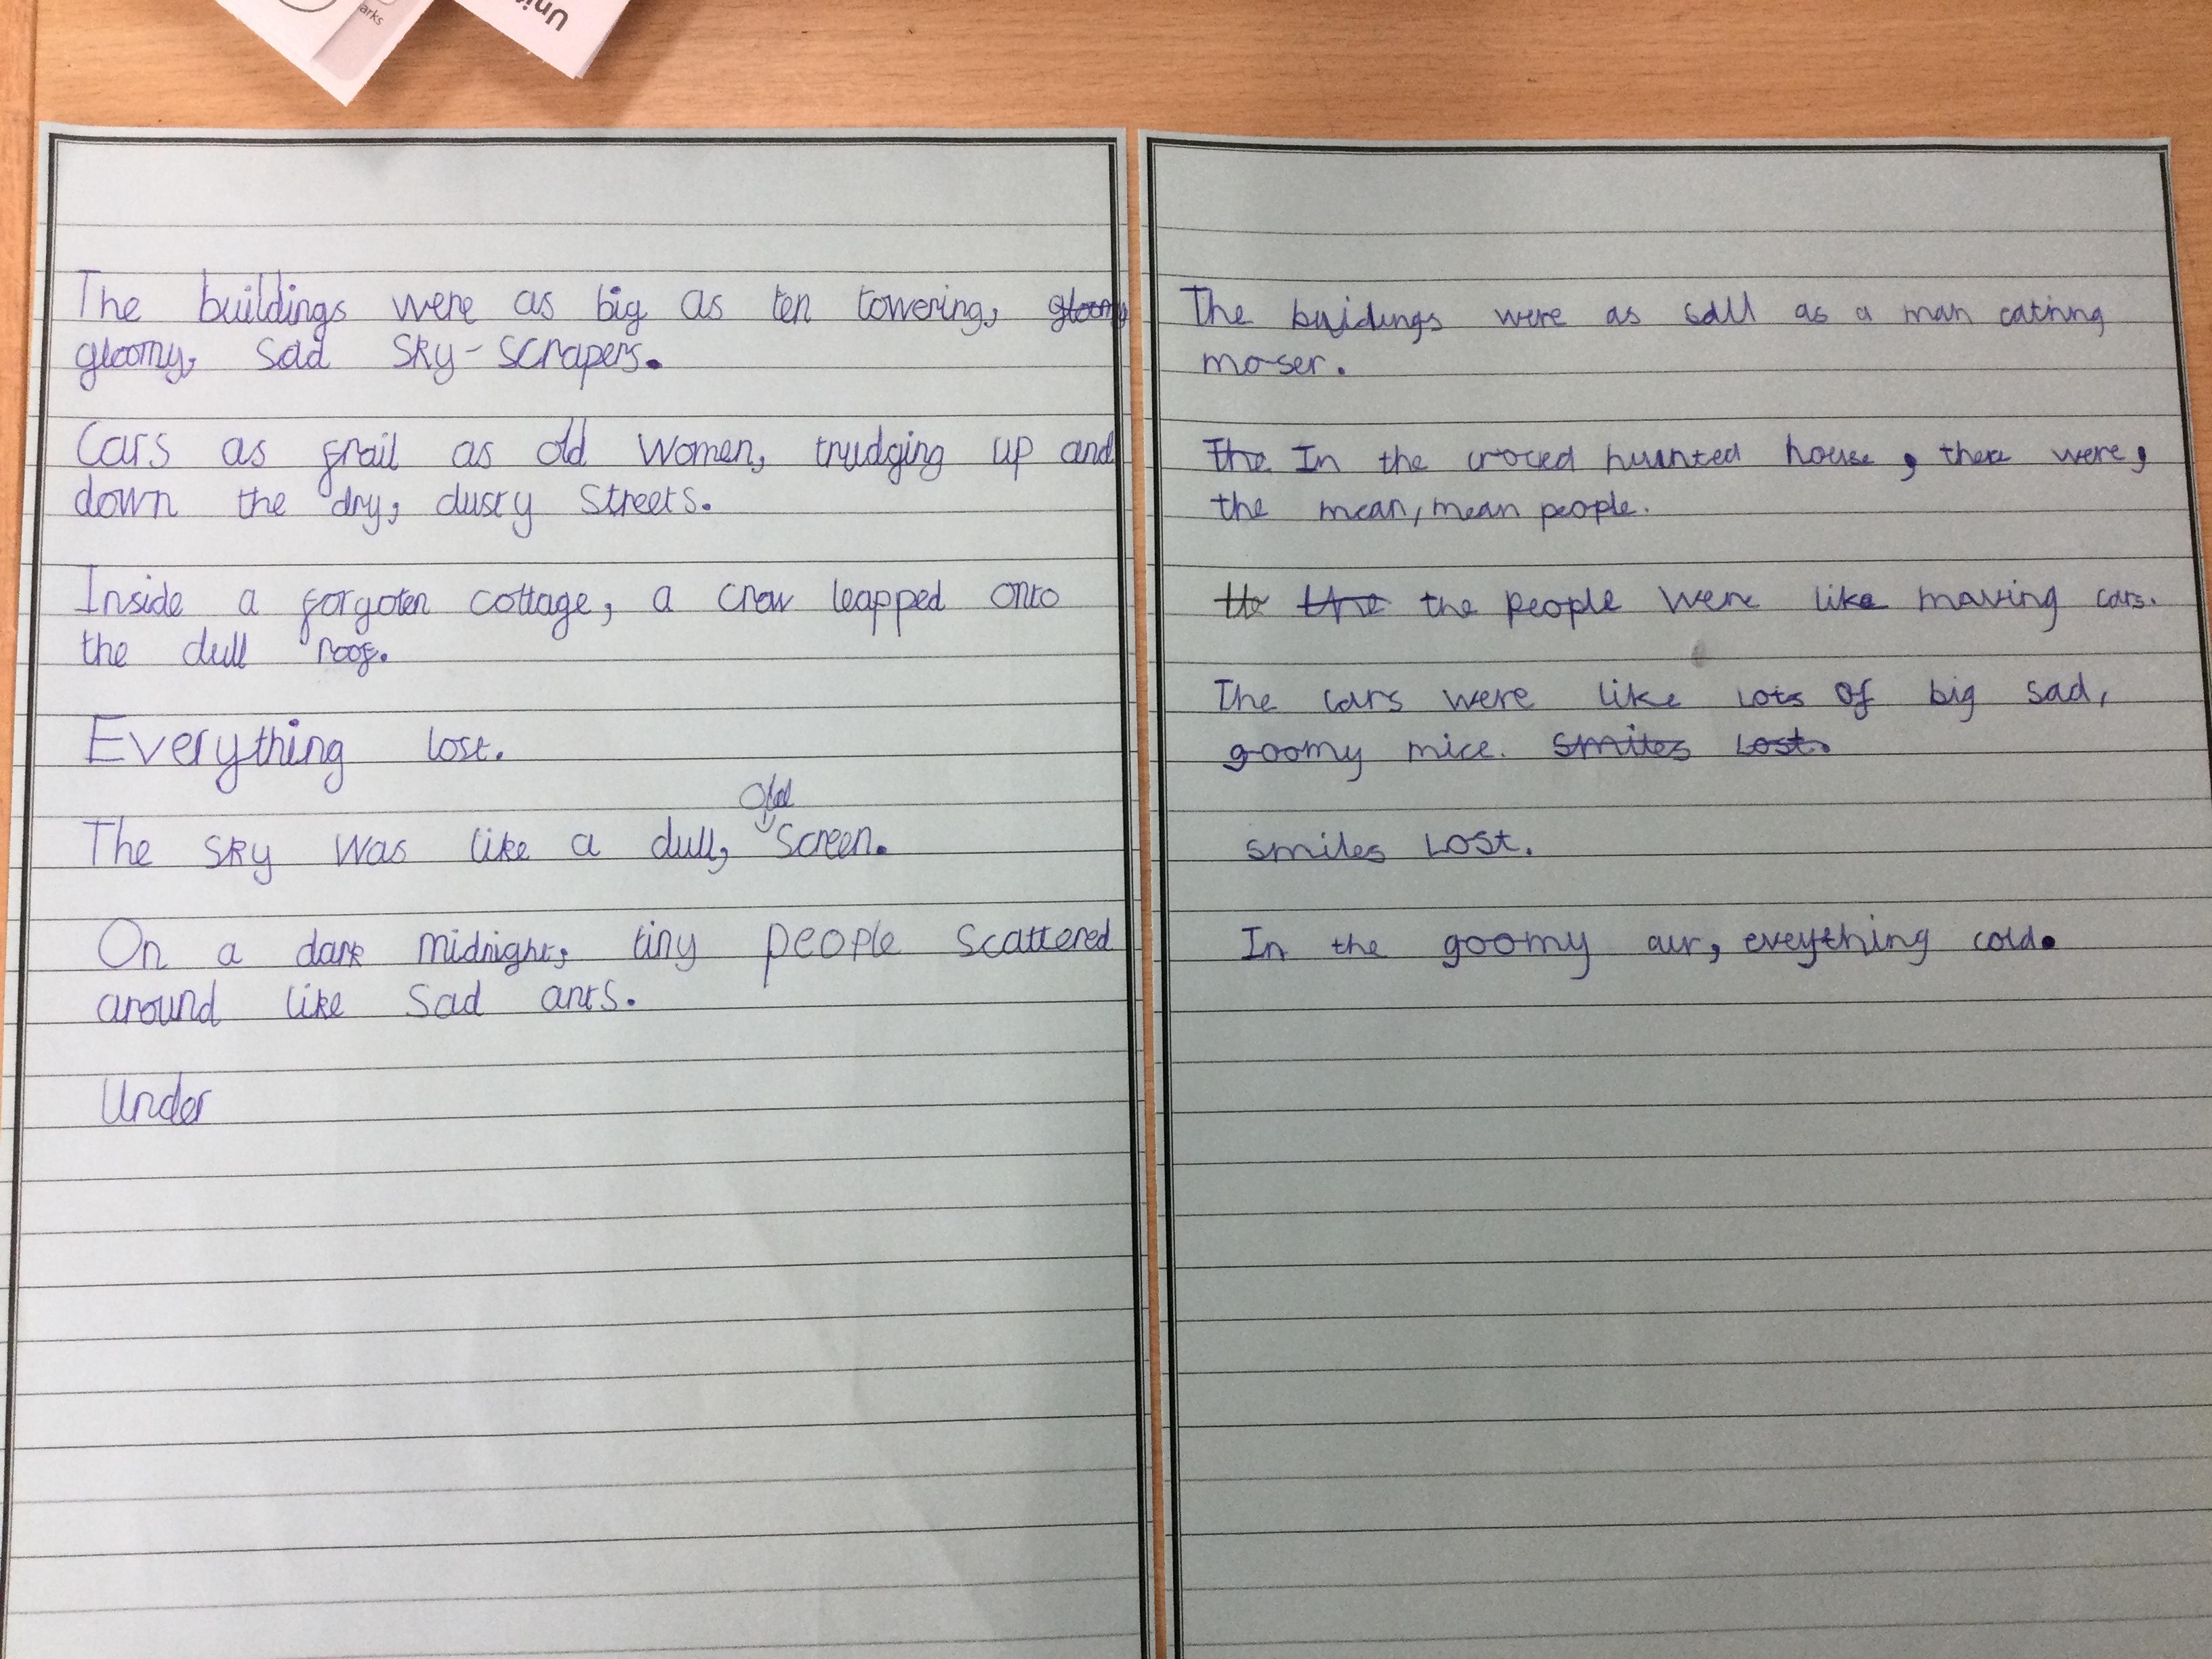 arks
Unic
The buildings were as big as ten towering, gloomy
gloomy, sad sky-scrapers.
Cars as frail as old women, trudging up and
down the dry, dusty streets.
Inside a forgoten cottage, a crow leapped onto
the dull roof.
Everything lost.
The sky was like a dull, old screen.
On a dark midnight, tiny people scattered
around like sad ants.
Under
The buidings were as as a man cathing
moser.
The In the croced hunted house, there were,
the mean, mean people.
the the the people were like moving cars.
The cars were like lots of big sad,
goomy mice. smiles lost.
smiles lost.
In the goomy air, eveything cold.